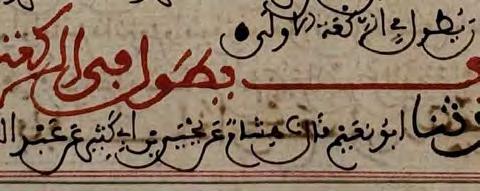 يطول في الركعة الاولى
يطول في الركعة
ابو نعيم قال نا هشام عن يحيى بن ابي كثير عن عبد